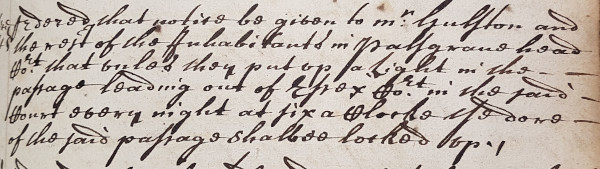 Ordered that notise be given to mr Gulston and
the rest of the Inhabitants in Palsgrave head
Cort that unles they put up a light in the
passage leading out of Essex Cort in the said
Court every night at six a Clocke the dore
of the said passage shalbee locked up.